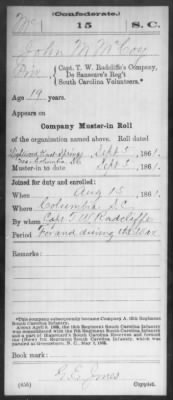 (Confederate.)
Mc 15 S.C.
John M McCoy
Pvt, Capt. T. W. Radcliffe's Company,
De Saussure's Reg't
South Carolina Volunteers.*
Age 19 years.
Appears on
Company Muster-in Roll
of the organization named above. Roll dated
Springs Sept 5, 1861.
Muster-in to date Sept 5, 1861.
Joined for duty and enrolled:
When Aug 15, 1861.
Where Columbia S.C.
By whom Capt T. W. Radcliffe
Period For and during the War
Remarks:
*This company subsequently became Company A, 15th Regiment
South Carolina Infantry.
Book mark:
E. E. Jones
(656) Copyist.